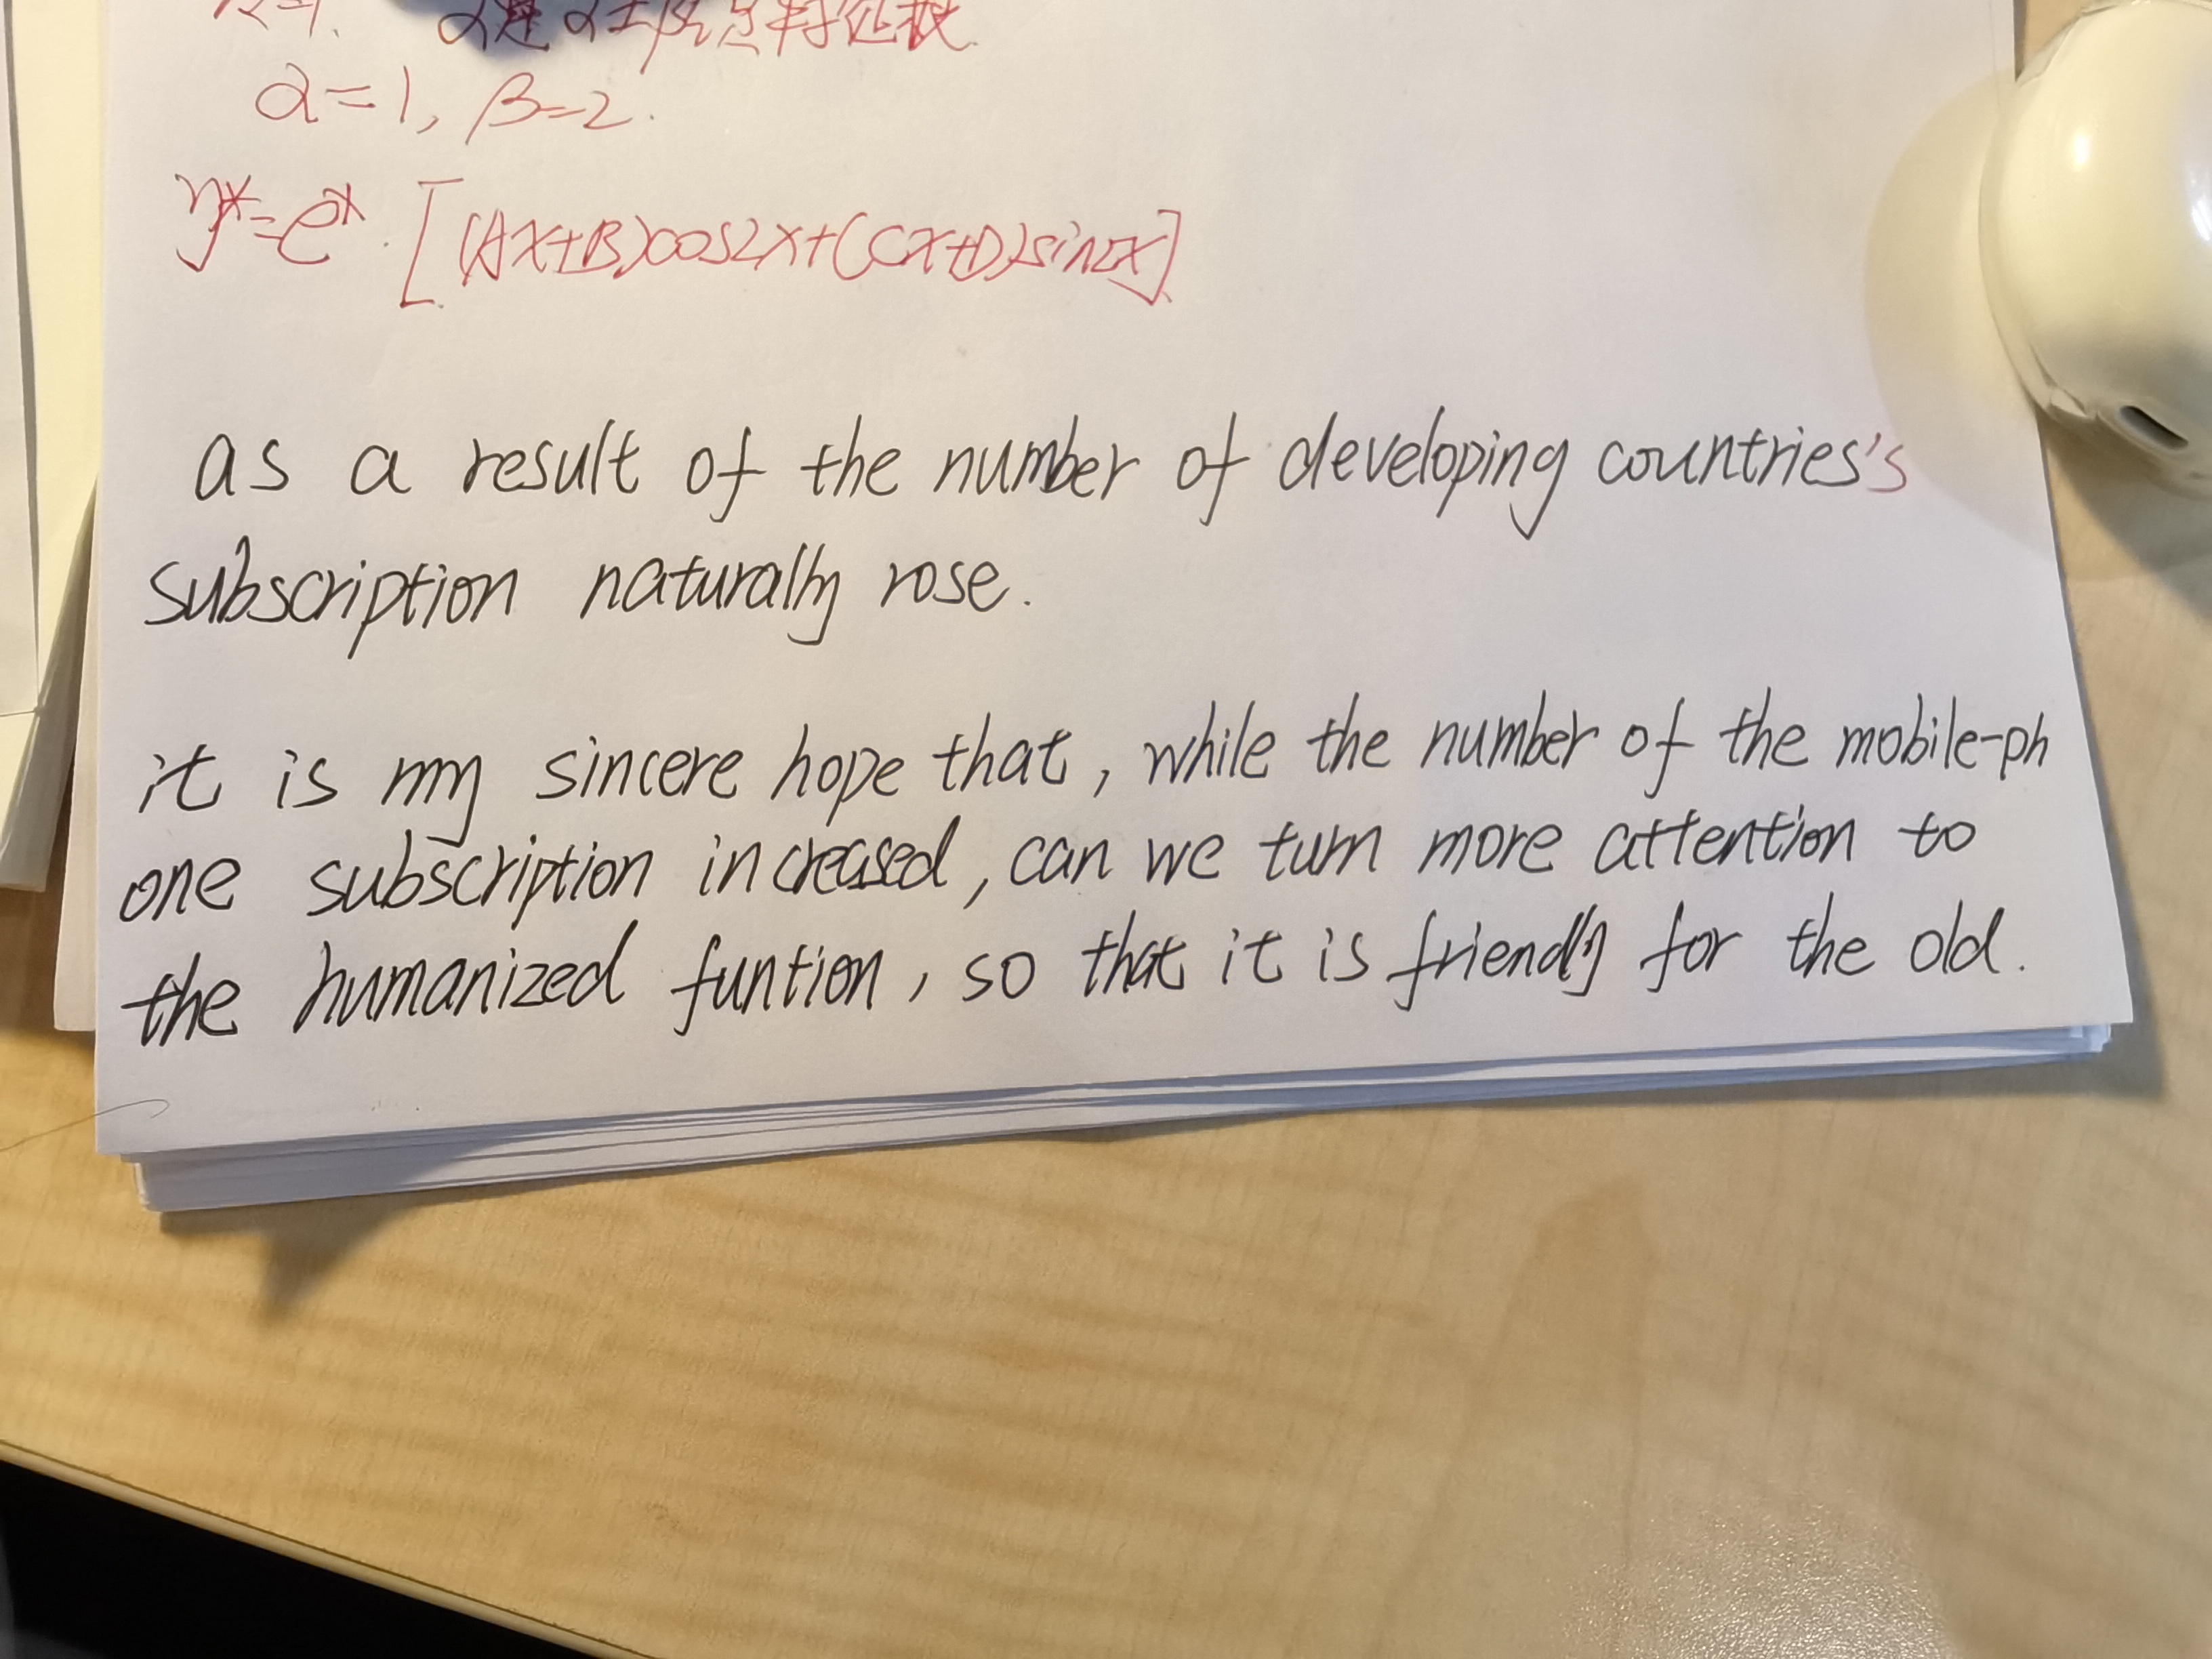 α=1, β=2.
y*=eˣ·[(Ax+B)cos2x+(Cx+D)sin2x]
as a result of the number of developing countries's
subscription naturally rose.
it is my sincere hope that, while the number of the mobile-ph
one subscription increased, can we turn more attention to
the humanized funtion, so that it is friendly for the old.